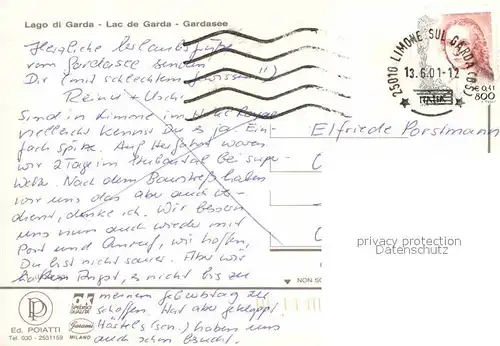 Lago di Garda - Lac de Garda - Gardasee
Herzliche Urlaubsgrüße
vom Gardasee senden
Dir (mit schlechtem Gewissen!!)
Reiner + Uschi
Sind in Limone im Hotel Royal
vielleicht kennst Du es ja Ein-
fach spitze. Auf Herfahrt waren
wir 2 Tage im bei super-
Wetter. Nach dem Baustreß haben
wir uns das aber auch ver-
dient, denke ich. Wir bessern
uns nun auch wieder mit
Post und Anruf, wir hoffen,
Du bist nicht sauer. Aber wir
hatten Angst, es nicht bis zu
meinem Geburtstag zu
schaffen. Hat aber geklappt
Härtels (sen.) haben uns
auch schon besucht.
25010 LIMONE SUL GARDA (BS)
13.6.01-12
ITALIA
€ 0,41
800
Elfriede Porstmann
privacy protection
Datenschutz
NON SC
PP
Ed. POIATTI
Tel. 030 - 2531159
MILANO